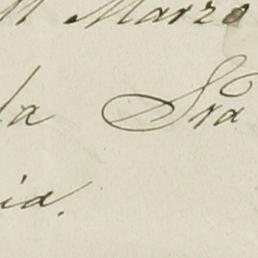 11 Marzo
la Sra
ia.